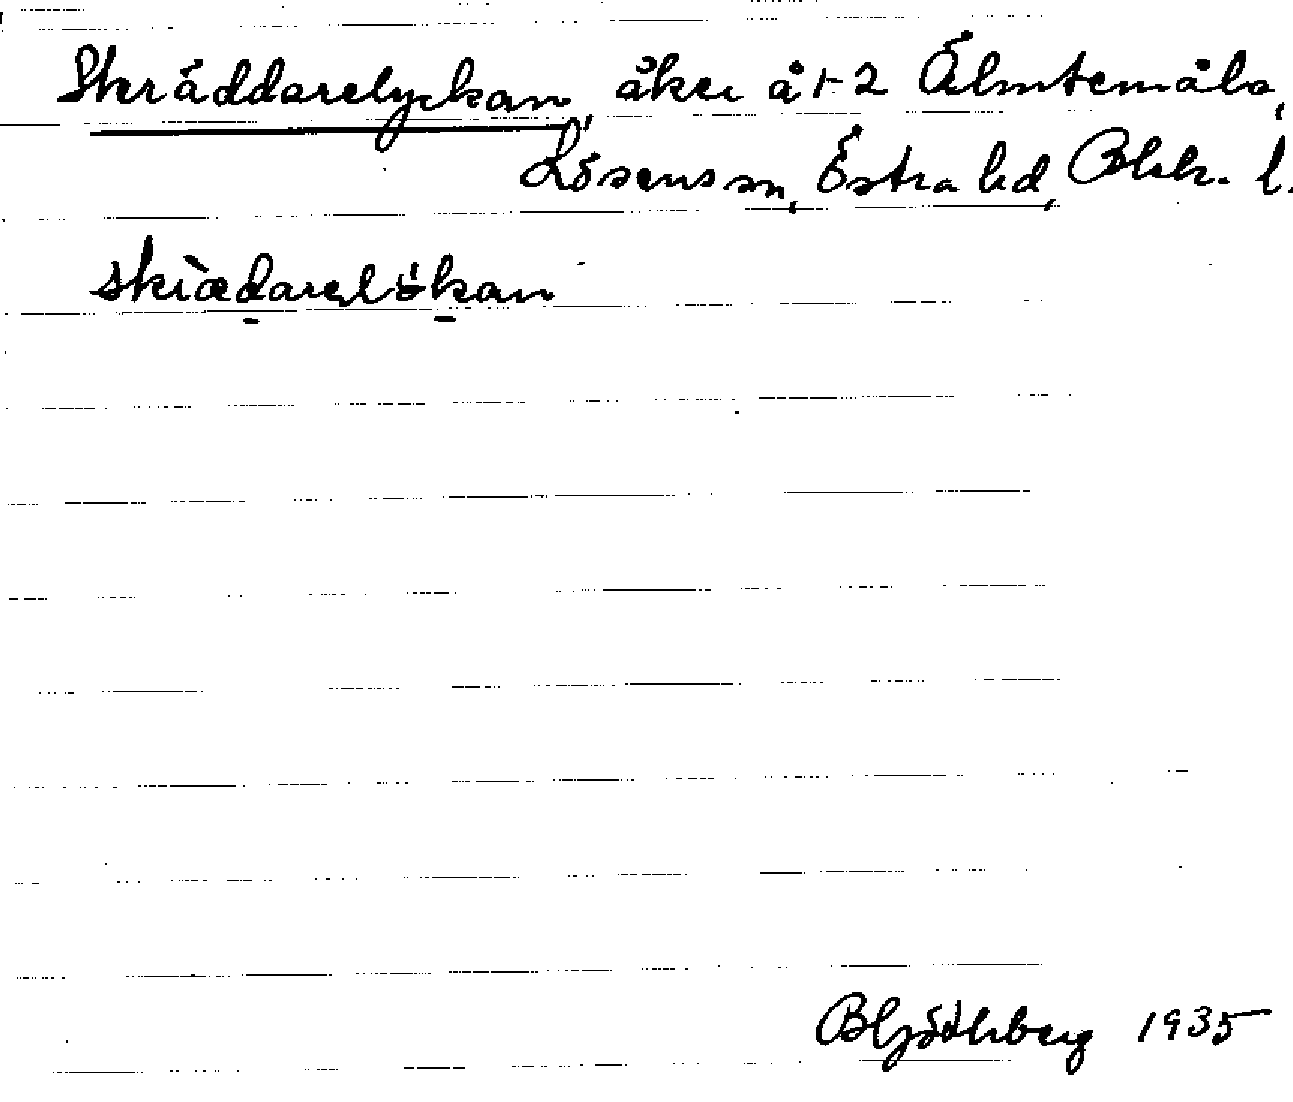 Skräddarelyckan, åker å 1-2 Älmtemåla,
Lösens sn, Östra hd, Blek. l.
skrædarelökan
1935